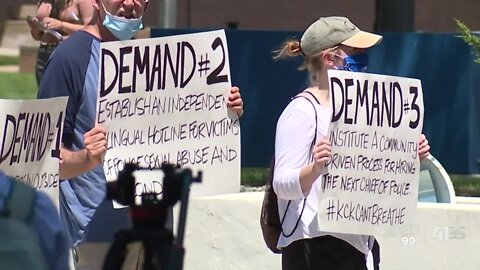 DEMAND #1
DEMAND #2
ESTABLISH AN INDEPENDENT
LINGUAL HOTLINE FOR VICTIMS
SEXUAL ABUSE AND
DEMAND #3
INSTITUTE A COMMUNITY
DRIVEN PROCESS FOR HIRING
THE NEXT CHIEF OF POLICE
#KCKCANTBREATHE
90
41